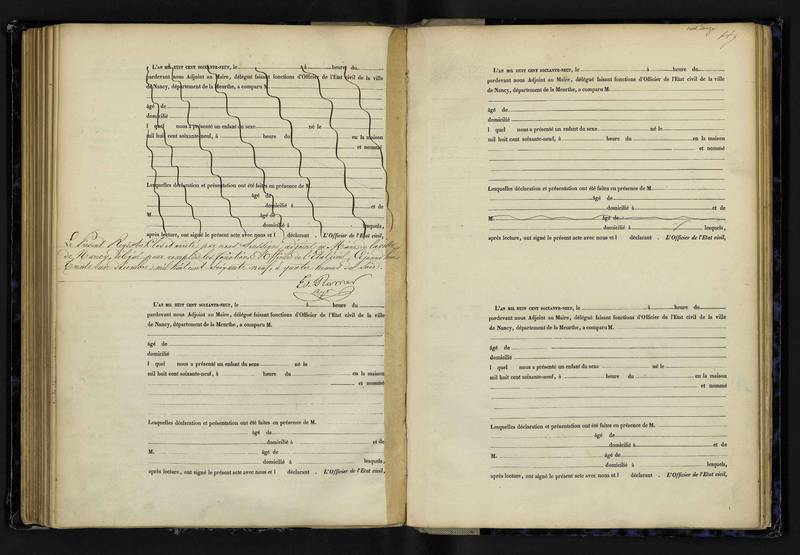 L'AN MIL HUIT CENT SOIXANTE-NEUF, le à heure du
pardevant nous Adjoint au Maire, délégué faisant fonctions d'Officier de l'Etat civil de la ville
de Nancy, département de la Meurthe, a comparu M
âgé de
domicilié
l quel nous a présenté un enfant du sexe né le
mil huit cent soixante-neuf, à heure du en la maison
et nommé
Lesquelles déclaration et présentation ont été faites en présence de M
âgé de
domicilié à et de
M. âgé de
domicilié à lesquels,
après lecture, ont signé le présent acte avec nous et l déclarant . L'Officier de l'Etat civil,
Le Présent Registre Clos et arrêté par nous Soussigné adjoint au Maire de la ville
de Nancy, délégué pour remplir les fonctions d'Officier de l'Etat civil, Cejourd'hui
Trente un décembre mil huit cent soixante neuf, à quatre heures du soir.
L'AN MIL HUIT CENT SOIXANTE-NEUF, le à heure du
pardevant nous Adjoint au Maire, délégué faisant fonctions d'Officier de l'Etat civil de la ville
de Nancy, département de la Meurthe, a comparu M.
âgé de
domicilié
l quel nous a présenté un enfant du sexe né le
mil huit cent soixante-neuf, à heure du en la maison
et nommé
Lesquelles déclaration et présentation ont été faites en présence de M.
âgé de
domicilié à et de
M. âgé de
domicilié à lesquels,
après lecture, ont signé le présent acte avec nous et l déclarant . L'Officier de l'Etat civil,
L'AN MIL HUIT CENT SOIXANTE-NEUF, le à heure du
pardevant nous Adjoint au Maire, délégué faisant fonctions d'Officier de l'Etat civil de la ville
de Nancy, département de la Meurthe, a comparu M.
âgé de
domicilié
l quel nous a présenté un enfant du sexe né le
mil huit cent soixante-neuf, à heure du en la maison
et nommé
Lesquelles déclaration et présentation ont été faites en présence de M.
âgé de
domicilié à et de
M. âgé de
domicilié à lesquels,
après lecture, ont signé le présent acte avec nous et l déclarant . L'Officier de l'Etat civil,
L'AN MIL HUIT CENT SOIXANTE-NEUF, le à heure du
pardevant nous Adjoint au Maire, délégué faisant fonctions d'Officier de l'Etat civil de la ville
de Nancy, département de la Meurthe, a comparu M.
âgé de
domicilié
l quel nous a présenté un enfant du sexe né le
mil huit cent soixante-neuf, à heure du en la maison
et nommé
Lesquelles déclaration et présentation ont été faites en présence de M.
âgé de
domicilié à et de
M. âgé de
domicilié à lesquels,
après lecture, ont signé le présent acte avec nous et l déclarant . L'Officier de l'Etat civil,